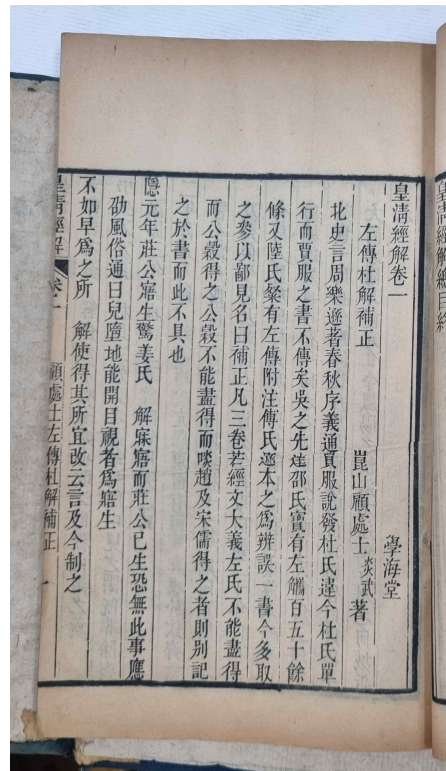 皇清經解卷一
學海堂
左傳杜解補正
崑山顧處士炎武著
北史言周樂遜著春秋序義通賈服說發杜氏違今杜氏單
行而賈服之書不傳矣吳之先達邵氏寶有左觿百五十餘
條又陸氏粲有左傳附注傅氏遜本之為辨誤一書今多取
之參以鄙見名曰補正凡三卷若經文大義左氏不能盡得
而公穀得之公穀不能盡得而啖趙及宋儒得之者則別記
之於書而此不具也
隱元年莊公寤生驚姜氏 解寐寤而莊公已生恐無此事應
劭風俗通曰兒墮地能開目視者為寤生
不如早為之所 解使得其所宜改云言及今制之
皇清經解 卷一 顧處士左傳杜解補正 一